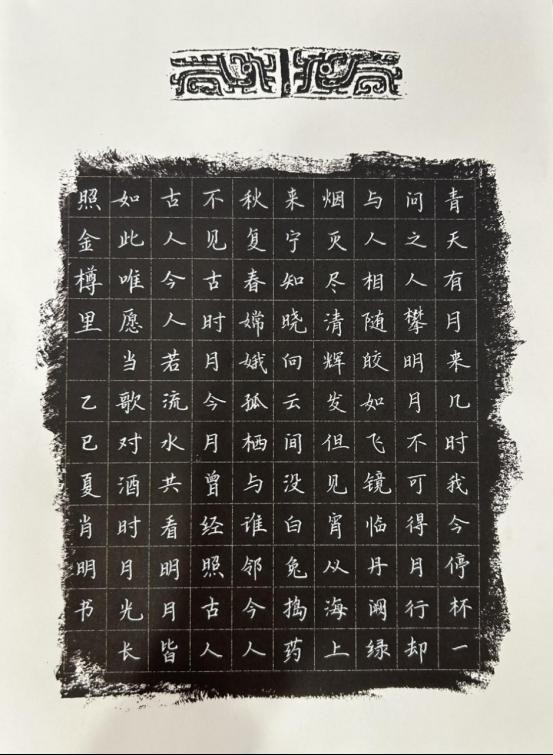 青天有月来几时我今停杯一
问之人攀明月不可得月行却
与人相随皎如飞镜临丹阙绿
烟灭尽清辉发但见宵从海上
来宁知晓向云间没白兔捣药
秋复春嫦娥孤栖与谁邻今人
不见古时月今月曾经照古人
古人今人若流水共看明月皆
如此唯愿当歌对酒时月光长
照金樽里 乙巳夏肖明书